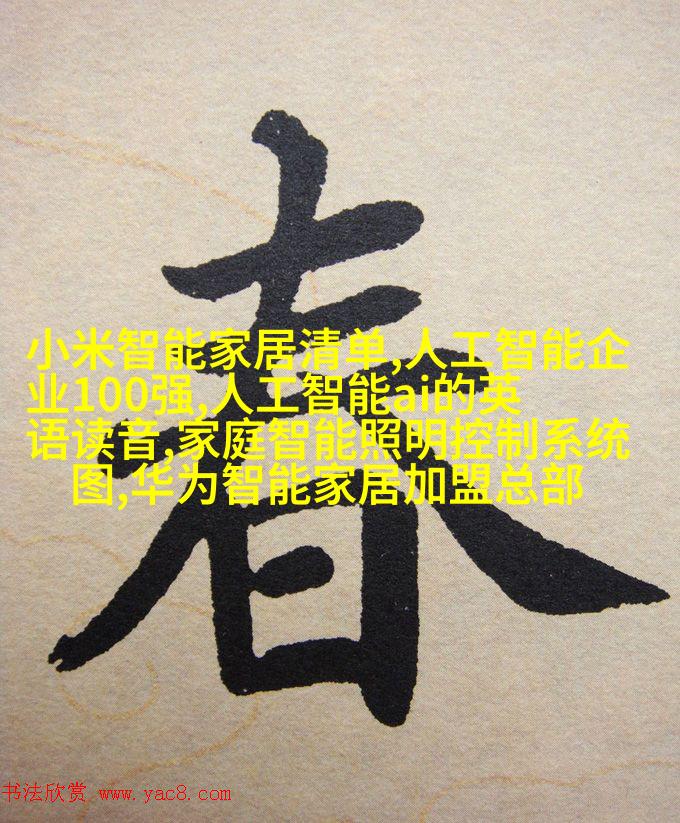 春
小米智能家居清单,人工智能企
业100强,人工智能ai的英
语读音,家庭智能照明控制系统
图,华为智能家居加盟总部
书法欣赏 www.yac8.com